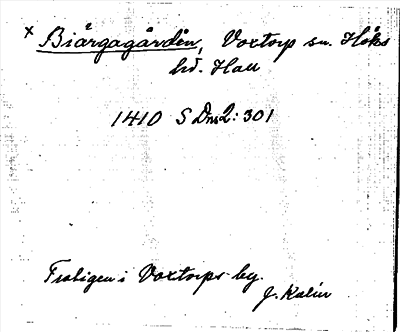 × Biårgagården, Voxtorp sn. Höks
hd. Hall
1410 SDns2:301
Troligen i Voxtorps by.
J. Kalén